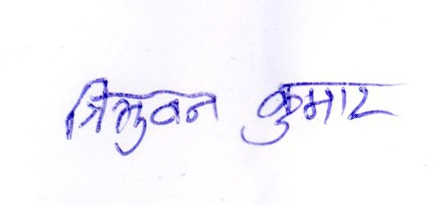 त्रिभुवन कुमार